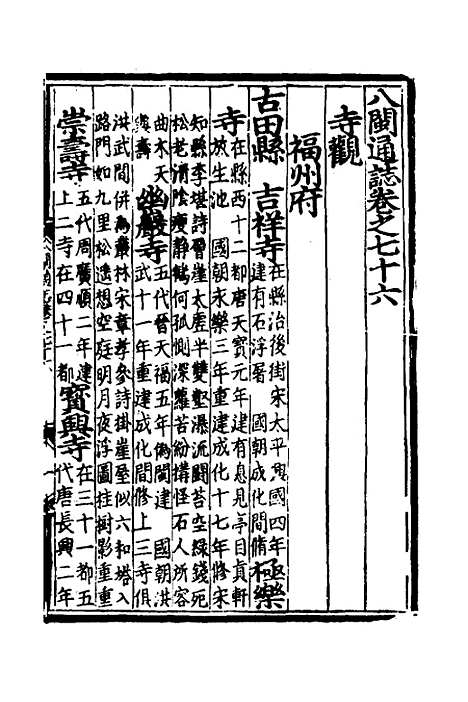 八閩通誌卷之七十六
寺觀
福州府
古田縣　吉祥寺在縣治後街宋太平興國四年
建有石浮屠　國朝成化間脩極樂
寺在縣西十二都唐天寶元年建有息見亭目真軒
放生池　國朝永樂三年重建成化十七年修宋
知縣李堪詩磴達太虛半雙壑瀑流闘苔空綠錢死
松老清陰瘦靜鷗何孤惻深蘿苦紛搆怪石人所容
曲水天與壽幽巖寺五代晉天福五年偽閩建　國朝洪
武十一年重建成化間修上三寺俱
洪武間併為叢林宋章孝參詩掛崖屋似六和塔入
路門如九里松遙想空庭明月夜浮圖桂樹影重重
崇壽寺五代周廣順二年建
上二寺在四十一都寶興寺在三十一都五
代唐長興二年